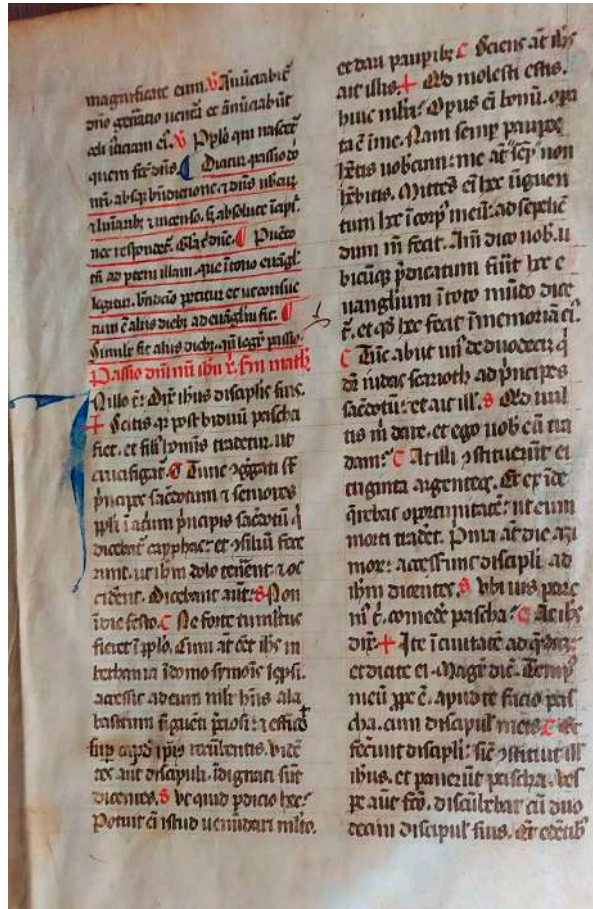 magnificate eum. V Anūciabit̄
dn̄o gen̄atio uent̄a et an̄ūciabūt
celi iusticiam ei⁹. V Pp̄lo qui nascet̄
quem fec̄ dn̄s. ¶ Dicitur passio dō
mī. absq; bn̄dictione
⁊ luīarib; ⁊ incenso. absolute īcipit̄.
nec respondet̄. Gl̄a t̄ dn̄e. ¶ Pueto
tn̄ ad p̄cem illam. que ī tono euāgl̄
legitur. bn̄dc̄io petitur et ut consue
tum ē aliis dieb; ad euāgl̄iu fit. ¶
Similr̄ fit aliis dieb;. qn̄ legit̄ passio.
Passio dn̄i nr̄i ihū x̄. scd̄m math̄
Nillo t̄: Dix̄ ihūs discip̄lis suis.
+ Scitis q̄ post biduū pascha
fiet. et fili⁹ hoīnis tradetur. ut
crucifigat̄. C Tunc ɔgͣgati st̄
p̄ncipes sac̄dotum ⁊ seniores
pp̄li ī atrium p̄ncipis sac̄dotū q̄
dicebat̄ cayphas: et ɔsiliū fece
runt. ut ihm̄ dolo ten̄ent ⁊ oc
cid̄ent. Dicebant aut̄: S Non
ī die festo. C Ne forte tumultus
fieret ī pp̄lo. Cum at̄ ēet ihs̄ in
bethania ī domo symōis lep̄si.
accessit ad eum mlr̄ hn̄s ala
bastrum ūguēti p̄ciosi: ⁊ effudit
sup̄ caput ip̄ius recūbentis. Vidē
tes aut̄ discipuli. īdignati sūt
dicentes. S Vt quid p̄dicio hec?
Potuit ēi istud uenūdari ml̄to.
et dari paup̄ib; C Sciens at̄ ihs̄
ait illis. + Qd̄ molesti estis.
huic mlr̄i? Opus ēi bonū. opa
ta ē ī me. Nam semp̄ paup̄es
hētis uobcum: me at̄ sēp̄ non
hēbitis. Mittēs ēi hec ūguen
tum hoc ī corp⁹ meū: ad sepeliē
dum m̄ fecit. Am̄ dico uob̄. u
bicūq; p̄dicatum fūit hoc e
uanglium ī toto mūdo dice
t̄. et qd̄ hec fecit ī memoriā ei⁹.
C Tūc abiit un⁹ de duodecī q̄
dr̄ iudas scarioth ad p̄ncipes
sac̄dotū: et ait ill̄. S Qd̄ uul
tis m̄ dare. et ego uob̄ eū tra
dam? C At illi ɔstituerūt ei
triginta argenteos. Et ex īde
q̄rebat oportunitatē: ut eum
morti tradet̄. P̄ma at̄ die azi
mor̄: access̄unt discip̄li ad
ihm̄ dicentes. S Vbi uis pare
m̄ t̄. comed̄e pascha? C At ihs̄
dix̄: + Ite ī ciuitatē ad q̄ndā:
et dicite ei. Magr̄ dic̄. Temp⁹
meū p̄pe ē. apud te facio pas
cha. cum discipul̄ meis. C Et
fec̄unt discip̄li: sic̄ ɔstituit ill̄
ihūs. et parauerūt pascha. Ves
pe aut̄ fc̄o. discūbebat cū duo
decim discipul̄ suis. Et edētib⁹